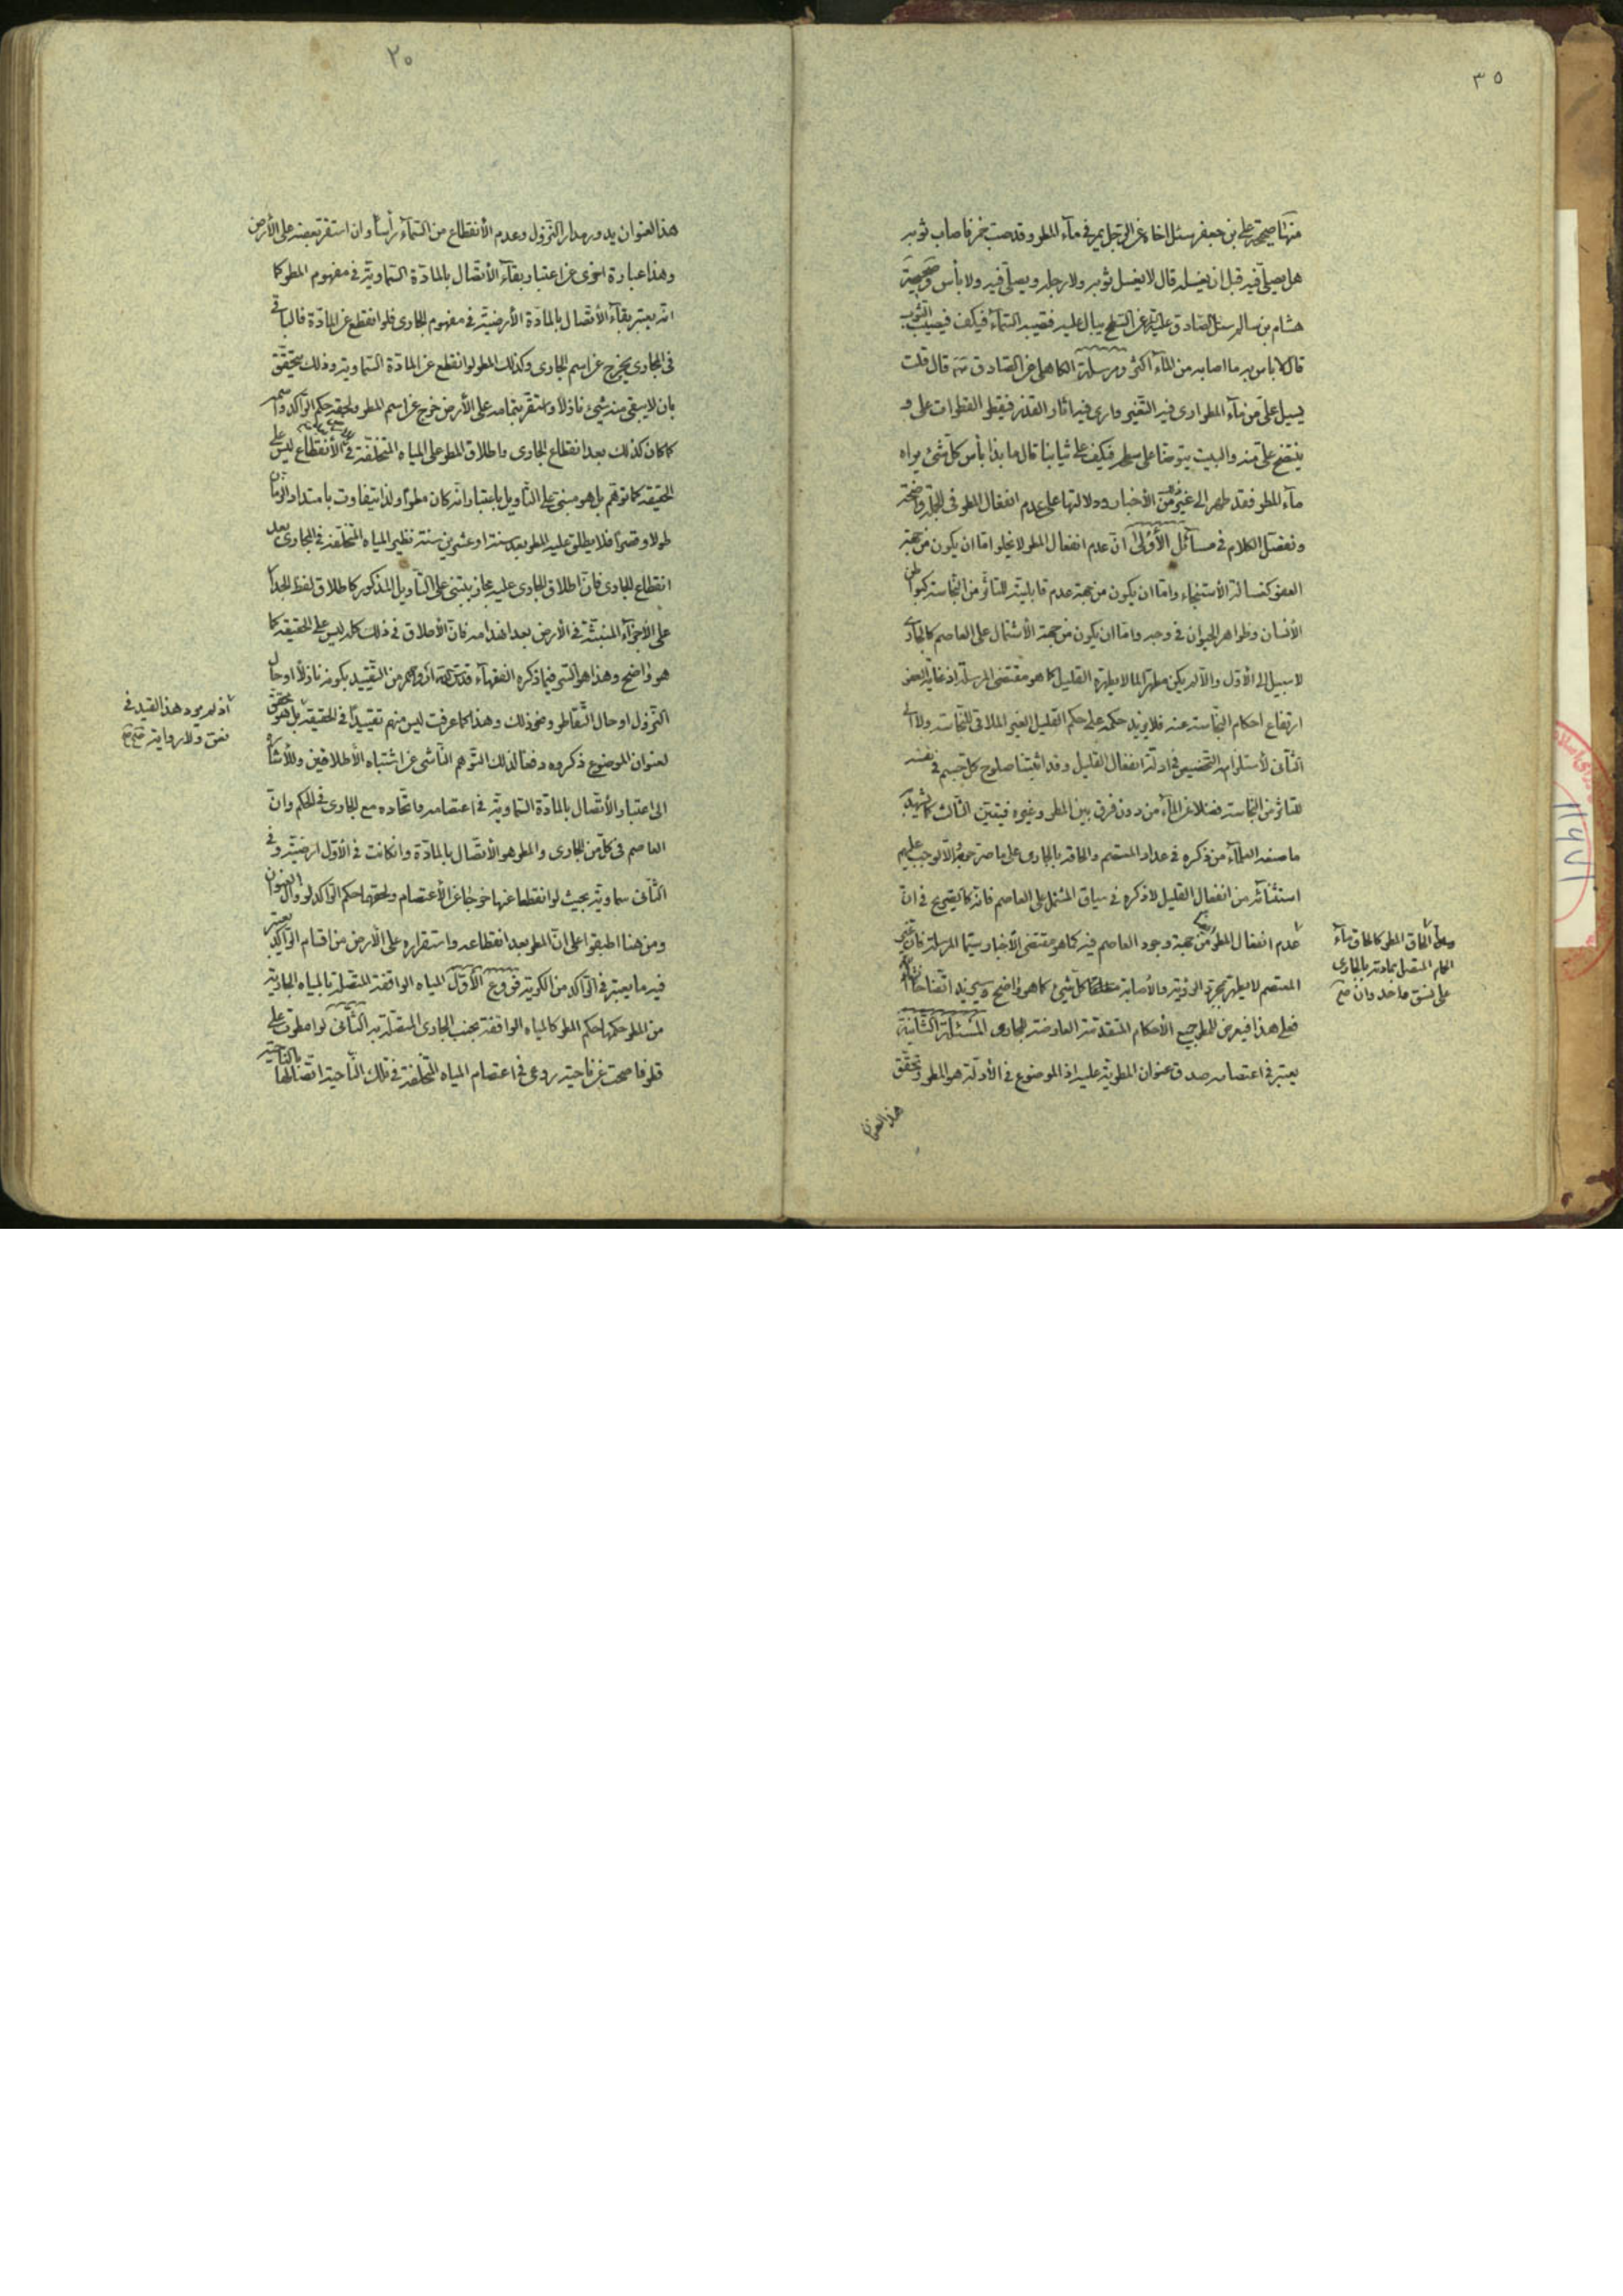 ٣٥
منها صحيحة علي بن جعفر سئل اخاه عن الرجل يمر في مآء المطر وقد صب خمر فاصاب ثوبه
هل يصلي فيه قبل ان يغسله قال لا يغسل ثوبه ولا رجله ويصلي فيه ولا بأس وصحيحة
هشام بن سالم سئل الصادق عليه عن السطح يبال عليه فتصيبه السمآء فيكف فيصيب الثوب
قال لا بأس به ما اصابه من المآء اكثر ومرسلة الكاهلي عن الصادق قال قلت
يسيل علي من مآء المطر ارى فيه التغير وارى فيه اثار القذر فيقطر القطرات علي و
ينتضح علي منه والبيت يتوضأ على سطحه فيكف على ثيابنا قال ما بذا بأس كل شئ يراه
مآء المطر فقد طهر الى غير من الأخبار ودلالتها على عدم انفعال المطر في الجملة واضحة
وتفصيل الكلام في مسآئل الأولى ان عدم انفعال المطر لا يخلو اما ان يكون من جهة
العفو كغسالة الأستنجاء واما ان يكون من جهة عدم قابليته للتأثر من النجاسة كبواطن
الأنسان وظواهر الحيوان في وجه واما ان يكون من جهة الأشتمال على العاصم كالجاري
لا سبيل الى الأول والا لم يكن مطهرا لما لا يطهره القليل كما هو مقتضى المرسلة اذ غاية العفو
ارتفاع احكام النجاسة عنه فلا يزيد حكمه على حكم القليل الغير الملاقي للنجاسة ولا الى
الثاني لأستلزامه التخصيص في ادلة انفعال القليل وقد اثبتنا صلوح كل جسم في نفسه
للتأثر من النجاسة فضلا عن المآء من دون فرق بين المطر وغيره فيتعين الثالث كما يشهد به
ما صنعه العلمآء من ذكره في عداد المعتصم والحاقه بالجاري على ما صرحوا به والا لوجب عليهم
استثنآئه من انفعال القليل لا ذكره في سياق المشتمل على العاصم فانه كالصريح في ان
عدم انفعال المطر من جهة وجود العاصم فيه كما هو مقتضى الأخبار سيما المرسلة فان غير
المعتصم لا يطهر بمجرد الرؤية والأصابة كل شئ كما هو واضح وسيزيد اتضاحا
فعلى هذا فيعرض للمطر جميع الأحكام المتقدمة العارضة للجاري المسئلة الثانية
يعتبر في اعتصامه صدق عنوان المطرية عليه اذ الموضوع في الأدلة هو المطر وتحقق
هذا العنوان
الحاق المطر كالحاق مآء
الحمام المتصل بمادته بالجاري
على نسق واحد وان
٢٠
هذا العنوان يدور مدار النزول وعدم الأنقطاع من السمآء رأسا وان استقر بعضه على الأرض
وهذا عبارة اخرى عن اعتبار بقآء الأتصال بالمادة السماوية في مفهوم المطر كما
انه يعتبر بقآء الأتصال بالمادة الأرضية في مفهوم الجاري فلو انقطع عن المادة فالباقي
في المجاري يخرج عن اسم الجاري وكذلك المطر لو انقطع عن المادة السماوية وذلك يتحقق
بان لا يبقى منه شئ نازلا واستقر بتمامه على الأرض خرج عن اسم المطر ولحقه حكم الراكد واسمه
كما كان كذلك بعد انقطاع الجاري واطلاق المطر على المياه المتخلفة الأنقطاع ليس على
الحقيقة كما توهم بل هو مبني على التأويل باعتبار انه كان مطرا ولذا يتفاوت بامتداد الزمان
طولا وقصرا فلا يطلق عليه المطر بعد سنة او عشرين سنة نظير المياه المتخلفة في المجاري بعد
انقطاع الجاري فان اطلاق الجاري عليه مجاز يبتني على التأويل المذكور كاطلاق لفظ الجدار
على الأجزآء المنبثة في الأرض بعد انهدامه فان الأطلاق في ذلك كله ليس على الحقيقة كما
هو واضح وهذا هو السر فيما ذكره الفقهآء قدس الله ارواحهم من التقييد بكونه نازلا او حال
النزول او حال التقاطر ونحو ذلك وهذا كما عرفت ليس منهم تقييدا في الحقيقة بل هو محقق
لعنوان الموضوع ذكروه دفعا لذلك التوهم الناشي عن اشتباه الأطلاقين وللأشارة
الى اعتبار الأتصال بالمادة السماوية في اعتصامه واتحاده مع الجاري في الحكم وان
العاصم في كل من الجاري والمطر هو الأتصال بالمادة وان كانت في الأول ارضية وفي
الثاني سماوية بحيث لو انقطعا عنها خرجا عن الأعتصام ولحقهما حكم الراكد لزوال العنوان
ومن هنا اطبقوا على ان المطر بعد انقطاعه واستقراره على الأرض من اقسام الراكد يعتبر
فيه ما يعتبر في الراكد من الكرية فروع الأول المياه الواقفة المتصلة بالمياه الجارية
من المطر حكمها حكم المطر كالمياه الواقفة بجنب الجاري المتصلة به الثاني لو امطرت على
قلوفا صحت عن ناحية روعي في اعتصام المياه المتخلفة في تلك الناحية اتصالها بالناحية
اذ لم يرد هذا القيد في
نص ولا رواية